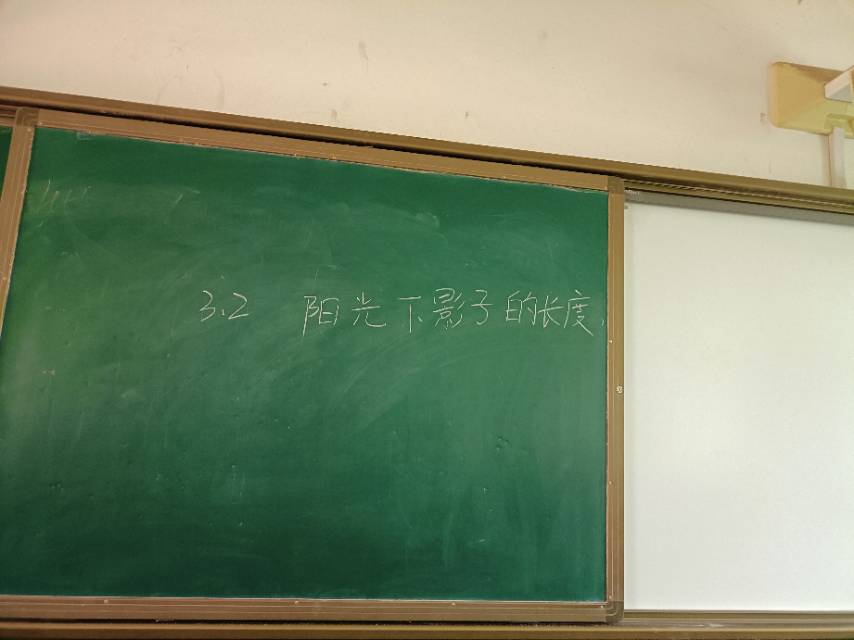 3.2 阳光下影子的长度